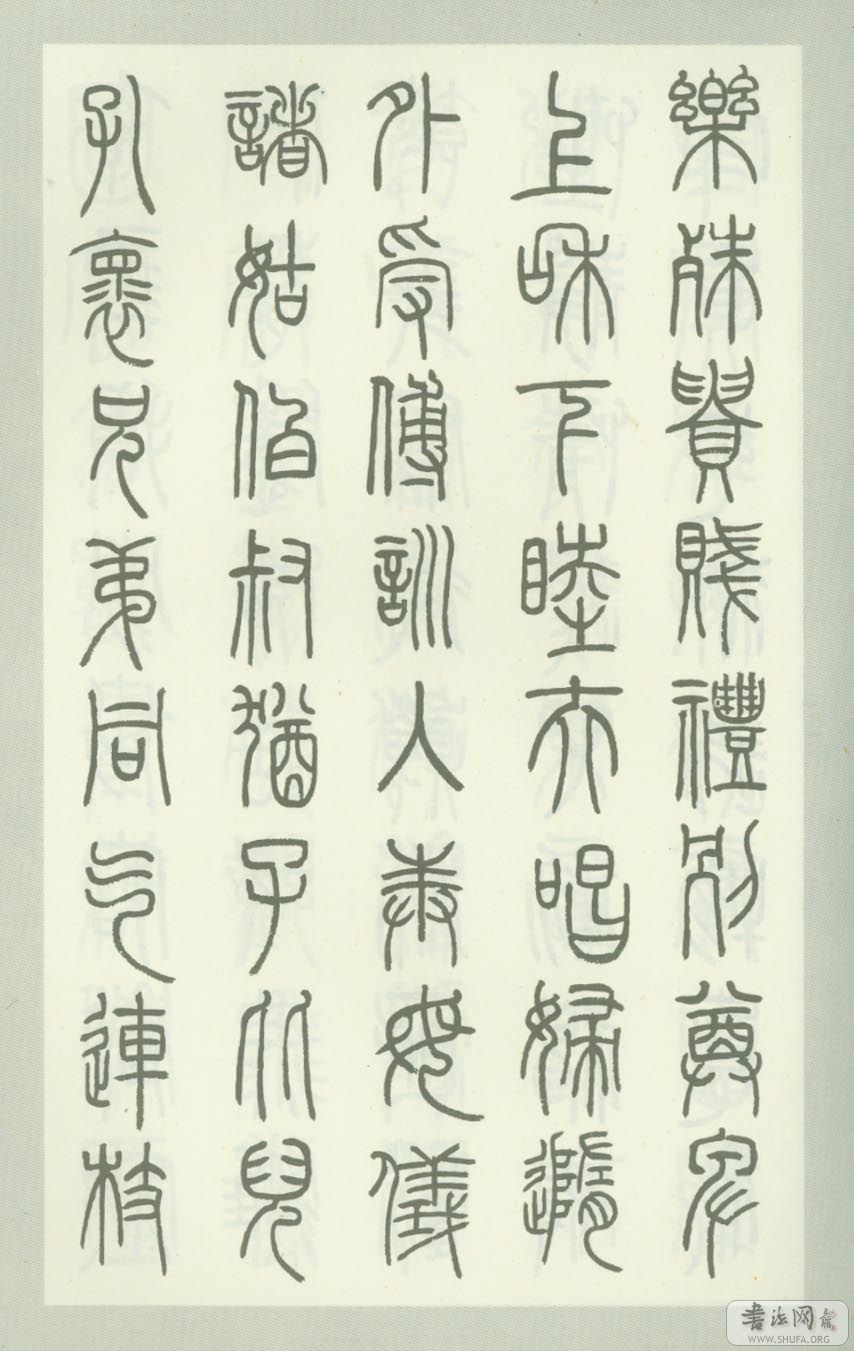 樂殊貴賤禮別尊卑
上和下睦夫唱婦隨
外受傅訓入奉母儀
諸姑伯叔猶子比兒
孔懷兄弟同气連枝
书法网
WWW.SHUFA.ORG